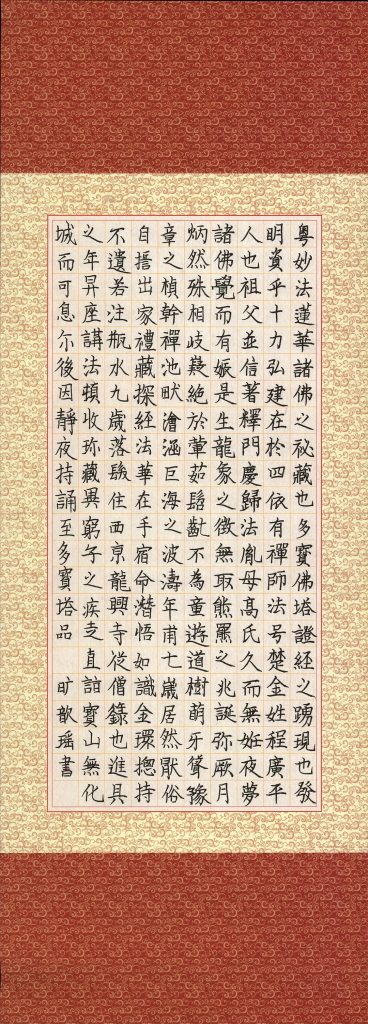 粵妙法蓮華諸佛之祕藏也多寶佛塔證經之踴現也發
明資乎十力弘建在於四依有禪師法号楚金姓程廣平
人也祖父並信著釋門慶歸法胤母高氏久而無姙夜夢
諸佛覺而有娠是生龍象之徵無取熊羆之兆誕弥厥月
炳然殊相岐嶷絕於葷茹髫齔不為童遊道樹萌牙聳豫
章之楨幹禪池畎澮涵巨海之波濤年甫七歲居然猒俗
自誓出家禮藏探經法華在手宿命潛悟如識金環惣持
不遺若注瓶水九歲落髮住西京龍興寺從僧籙也進具
之年昇座講法頓收珍藏異窮子之疾走直詣寶山無化
城而可息尔後因靜夜持誦至多寶塔品 旷歆瑶書